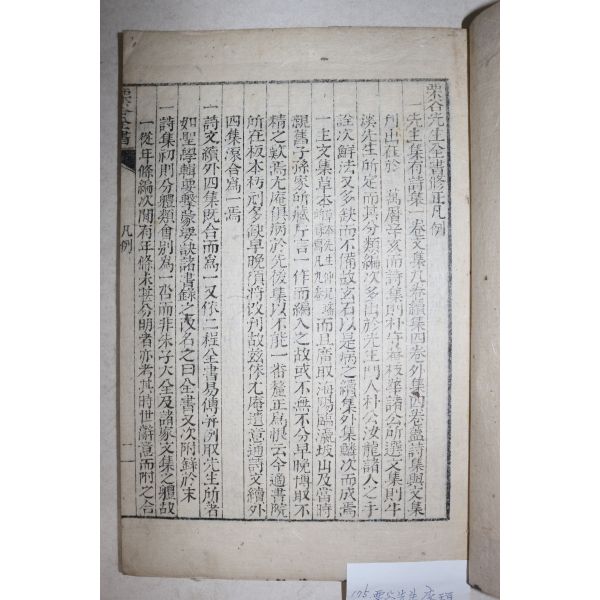 栗谷先生全書修正凡例
一先生集有詩集一卷文集九卷續集四卷外集四卷蓋詩集與文集
刊出在於 萬曆辛亥而詩集則朴守菴枝華諸公所選文集則牛
溪先生所定而其分類編次多出於先生門人朴公汝龍諸人之手
詮次鮮法又多缺而不備故玄石以是病之續集外集轔次而成焉
一主文集草本 而且廣取海陽臨瀛坡山及當時
親舊子孫家所藏片言一作而編入之故或不無不分早晚博取不
精之歎焉尤庵俱病於先後集以不能一番釐正爲恨云今適書院
所在板本朽刓多缺早晚須將改刊故茲依尤庵遺意通詩文續外
四集滾合爲一焉
一詩文續外四集旣合而爲一又依二程全書易傳幷列取先生所著
如聖學輯要擊蒙要訣諸書錄之改名之曰全書又次附錄於末
一詩集初則分體類會別爲一而非朱子大全及諸家文集之體故
一從年條編次間有年條未甚分明者亦考其時世辭意而附之合
栗谷全書 凡例 一
175 栗谷先生